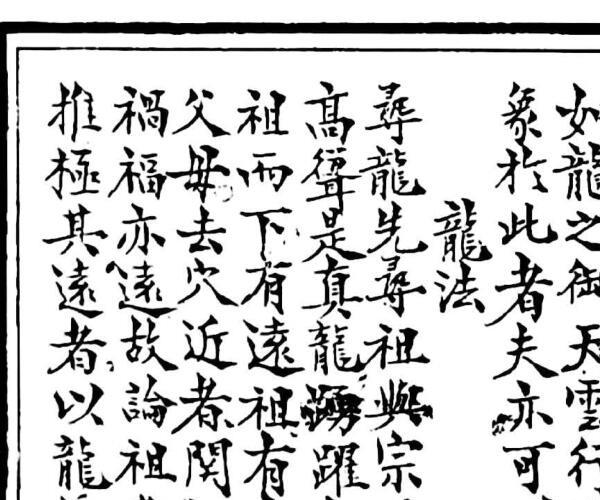 如龍之御天雲行
象於此者夫亦可
龍法
尋龍先尋祖與宗
高聳是真龍踴躍
祖而下有遠祖有
父母去穴近者関
禍福亦遠故論祖
推極其遠者以龍